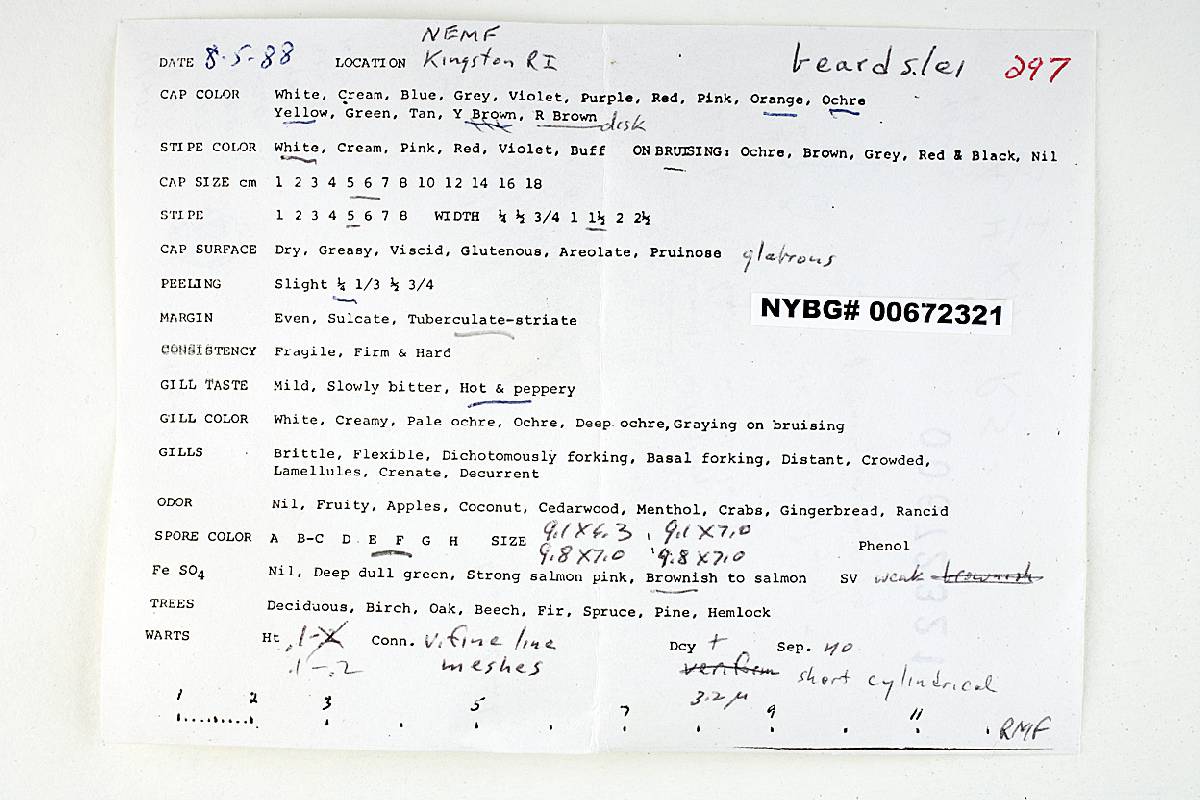 NEMF
DATE 8-5-88 LOCATION Kingston RI beardslei 297
CAP COLOR White, Cream, Blue, Grey, Violet, Purple, Red, Pink, Orange, Ochre
Yellow, Green, Tan, Y Brown, R Brown disk
STIPE COLOR White, Cream, Pink, Red, Violet, Buff ON BRUISING: Ochre, Brown, Grey, Red & Black, Nil
CAP SIZE cm 1 2 3 4 5 6 7 8 10 12 14 16 18
STIPE 1 2 3 4 5 6 7 8 WIDTH ¼ ½ 3/4 1 1½ 2 2½
CAP SURFACE Dry, Greasy, Viscid, Glutenous, Areolate, Pruinose glabrous
PEELING Slight ¼ 1/3 ½ 3/4
NYBG# 00672321
MARGIN Even, Sulcate, Tuberculate-striate
CONSISTENCY Fragile, Firm & Hard
GILL TASTE Mild, Slowly bitter, Hot & peppery
GILL COLOR White, Creamy, Pale ochre, Ochre, Deep ochre, Graying on bruising
GILLS Brittle, Flexible, Dichotomously forking, Basal forking, Distant, Crowded,
Lamellules, Crenate, Decurrent
ODOR Nil, Fruity, Apples, Coconut, Cedarwood, Menthol, Crabs, Gingerbread, Rancid
SPORE COLOR A B-C D E F G H SIZE 9.1 X 6.3, 9.1 X 7.0
9.8 X 7.0 9.8 X 7.0
Phenol
Fe SO4 Nil, Deep dull green, Strong salmon pink, Brownish to salmon SV weak brownish
TREES Deciduous, Birch, Oak, Beech, Fir, Spruce, Pine, Hemlock
WARTS Ht .1-X Conn. v. fine line Dcy + Sep. no
.1-.2 meshes short cylindrical
3.2 µ
1 2 3 5 7 9 11
RMF